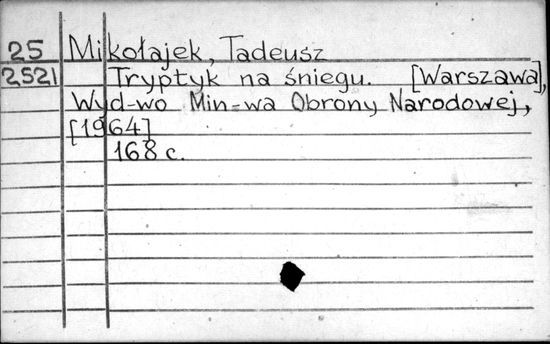 25 Mikołajek, Tadeusz
2521 Tryptyk na śniegu. [Warszawa],
Wyd-wo Min-wa Obrony Narodowej,
[1964]
168 c.